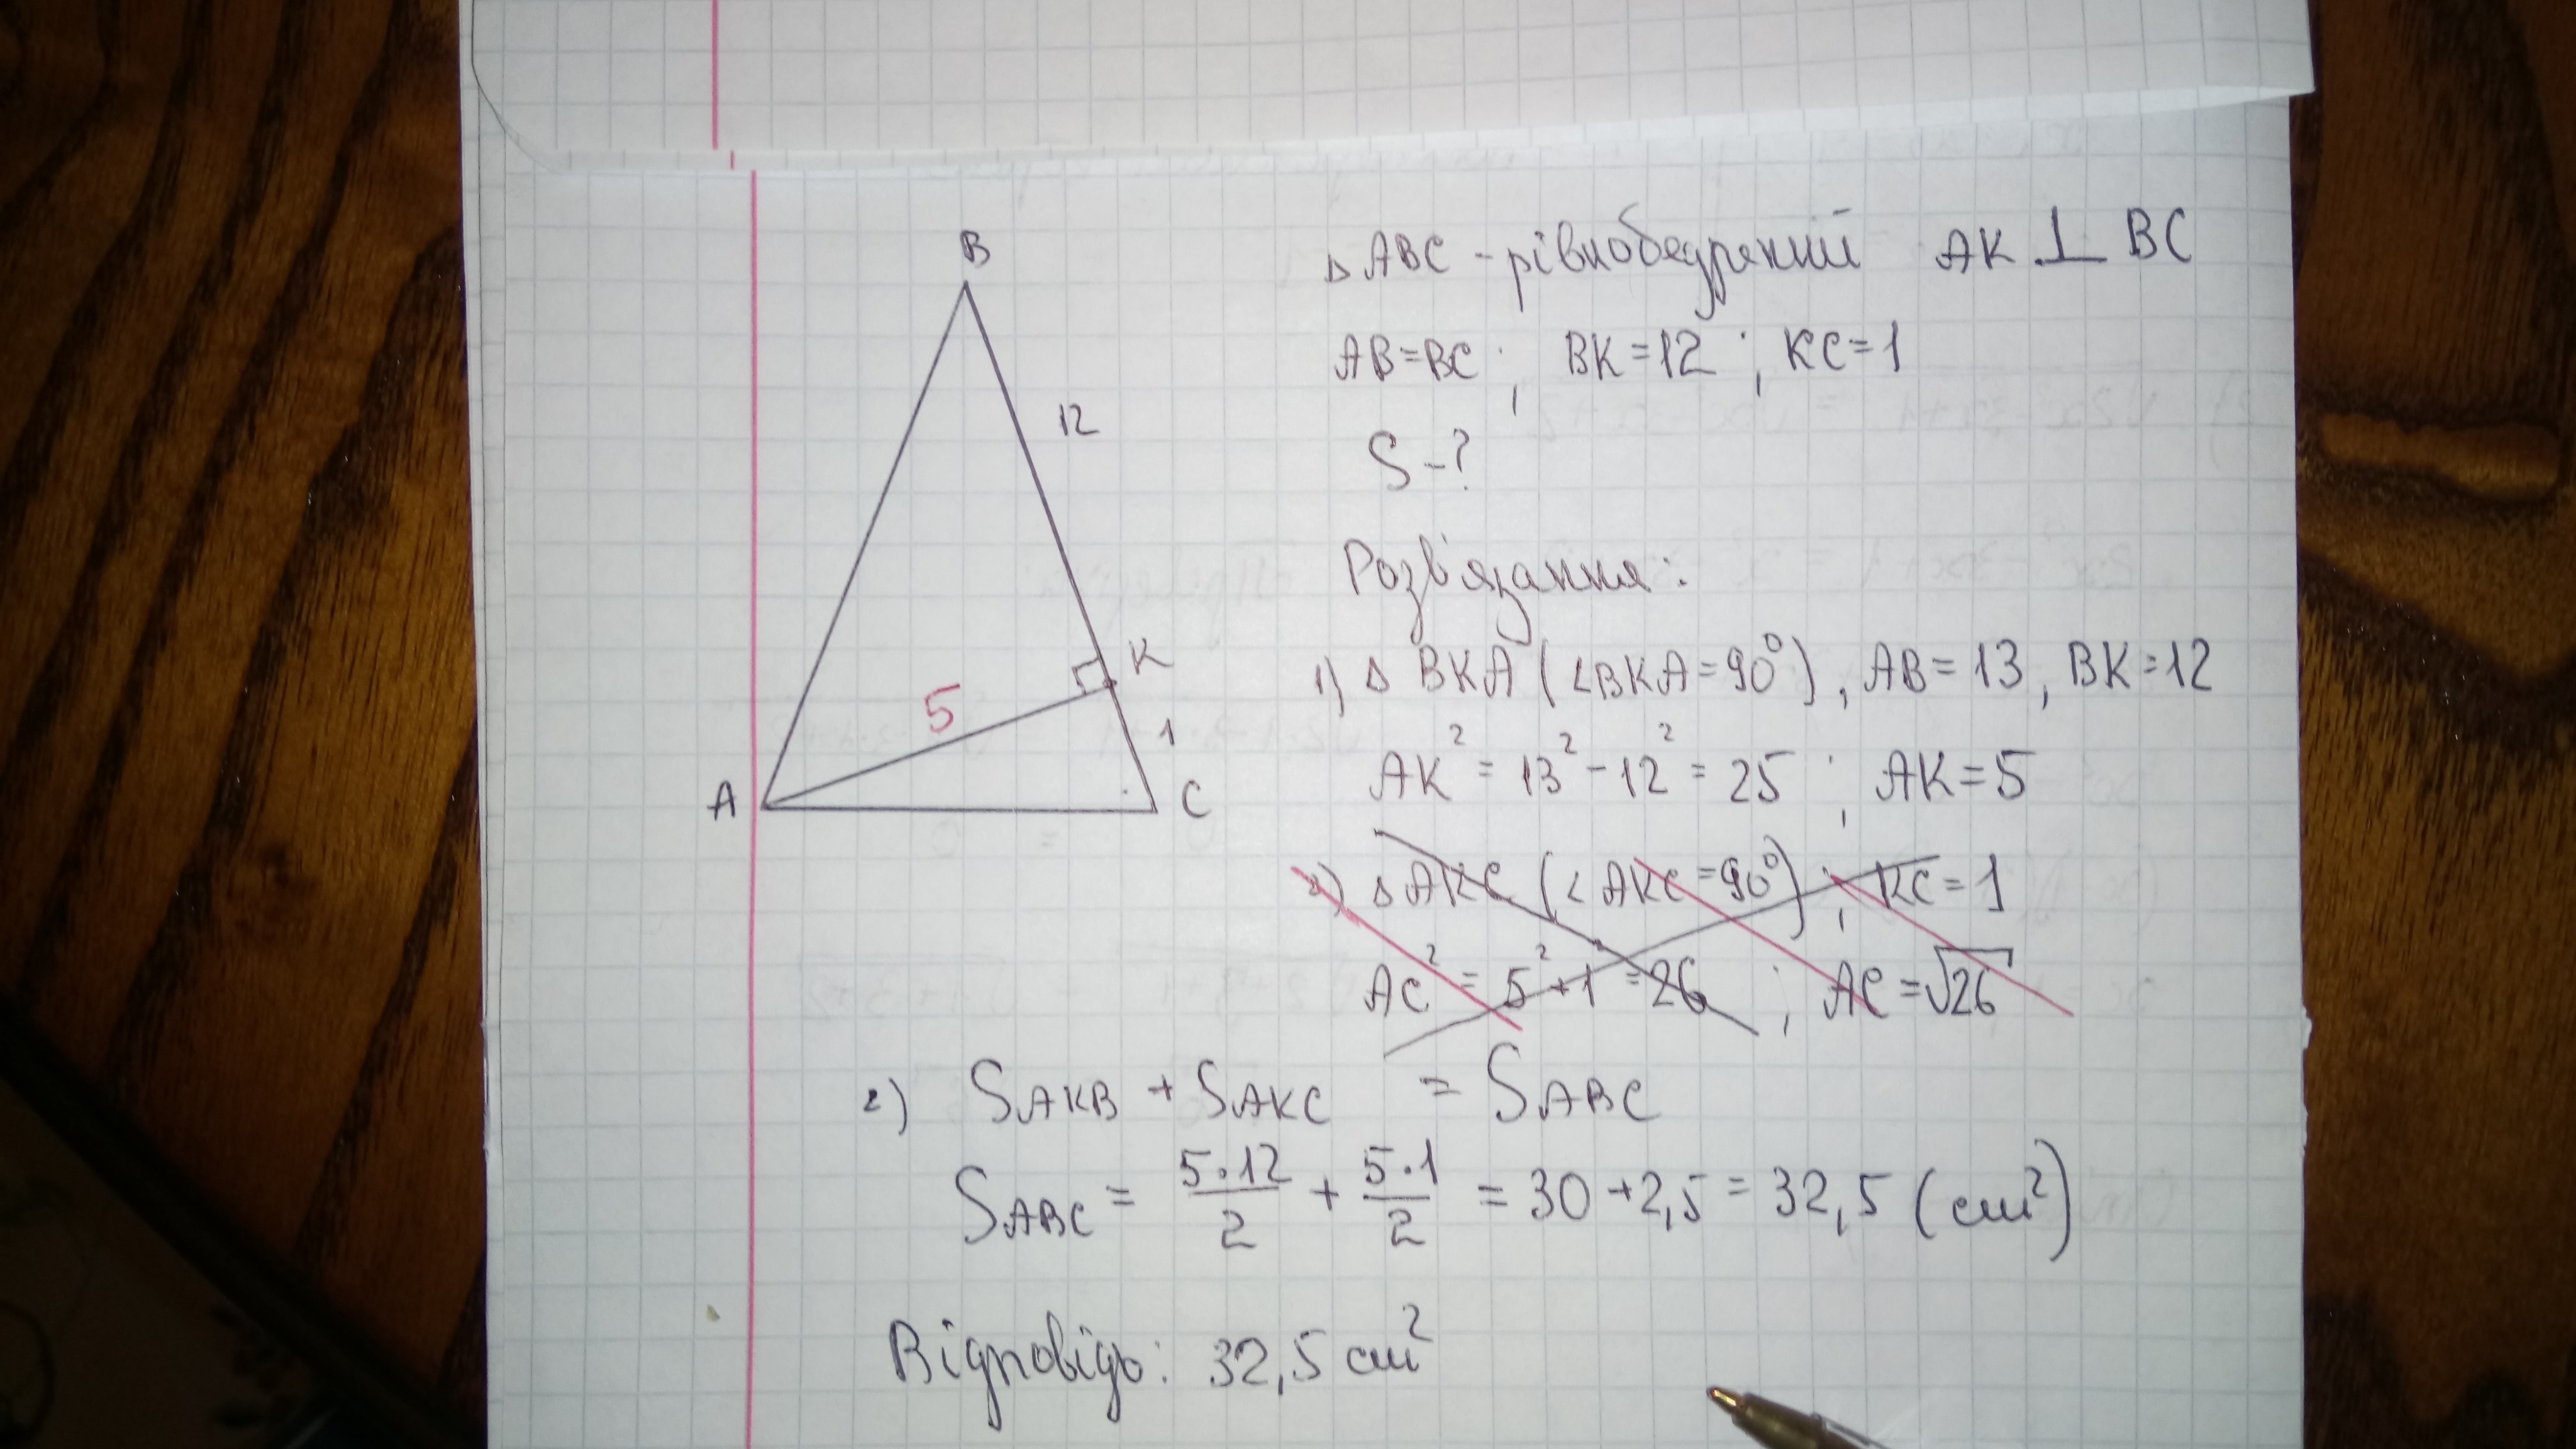 B
12
K
5
1
A
C
Δ ABC - рівнобедрений AK ⊥ BC
AB=BC ; BK=12 ; KC=1
S-?
Розв'язання:
1) Δ BKA (∠BKA=90⁰), AB=13, BK=12
AK² = 13² - 12² = 25 ; AK=5
2) Δ AKC (∠AKC=90⁰), KC=1
AC² = 5² + 1 = 26 ; AC = √26
2) S AKB + S AKC = S ABC
S ABC = 5·12/2 + 5·1/2 = 30 + 2,5 = 32,5 (см²)
Відповідь: 32,5 см²